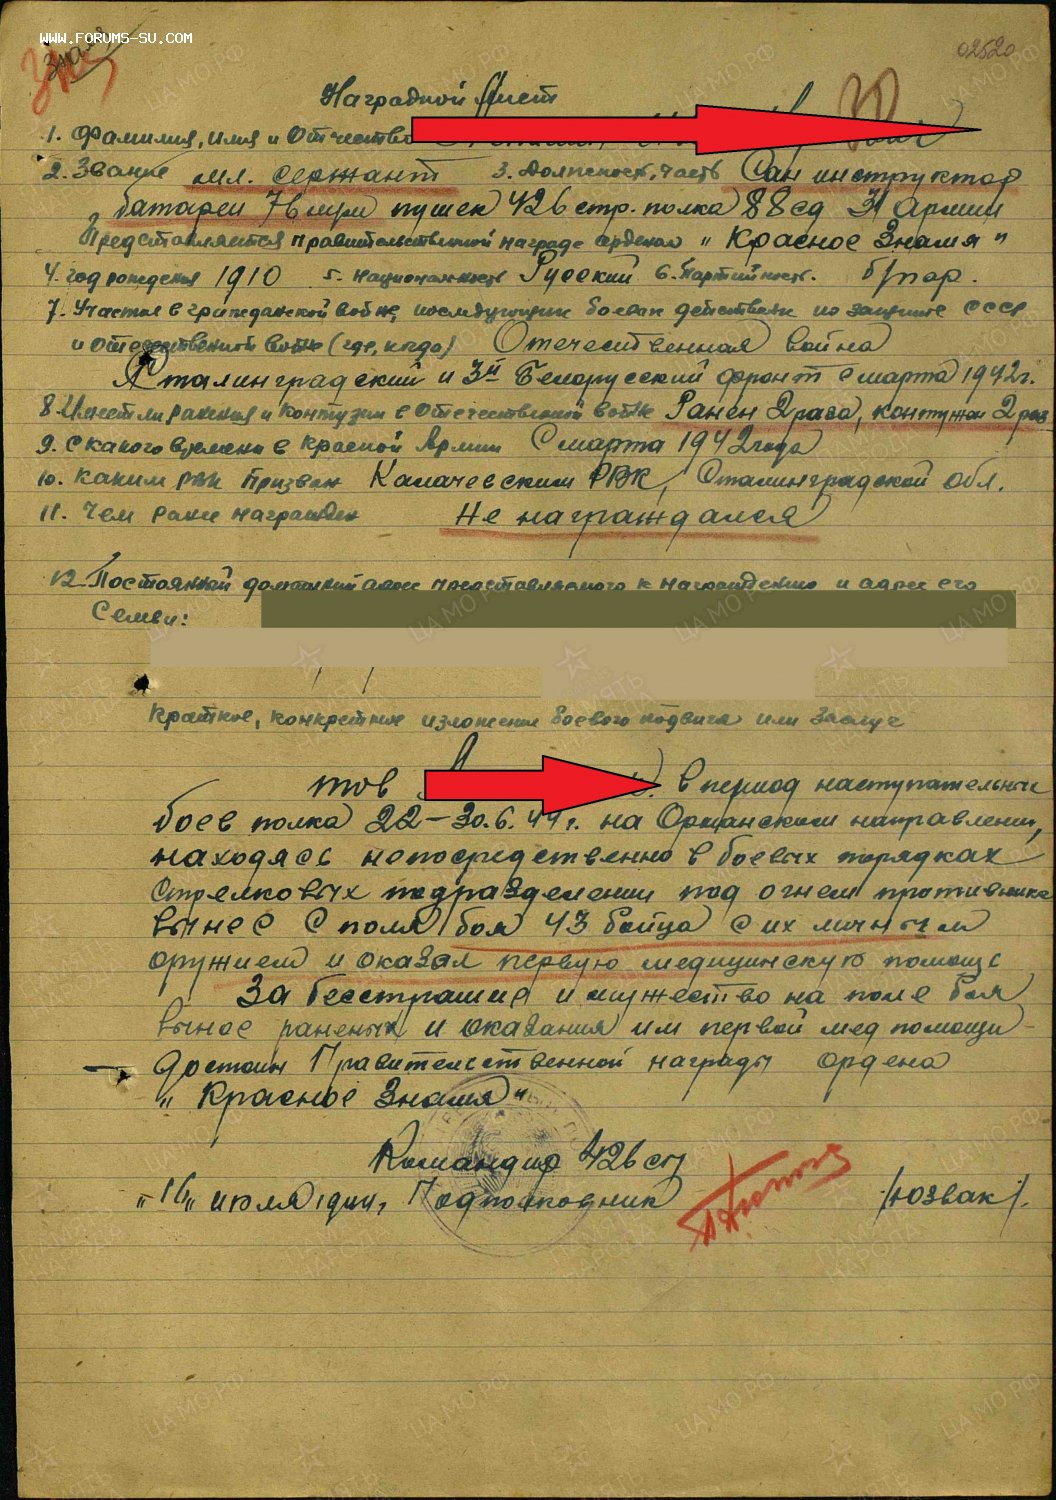 WWW.FORUMS-SU.COM
02520
Наградной Лист
1. Фамилия, имя и Отчество
2. Звание мл. сержант 3. Должность, часть Сан инструктор
батареи 76 мм пушек 426 стр. полка 88 сд 31 Армии
Представляется к правительственной награде орденом "Красное Знамя"
4. год рождения 1910 5. национальность Русский 6. Партийность. б/пар.
7. Участие в гражданской войне, последующих боевых действиях по защите СССР
и Отечественной войне (где, когда) Отечественная война
Сталинградский и 3й Белорусский фронт с марта 1942г.
8 Имеет ли ранения и контузии в Отечественной войне Ранен 2 раза, контужен 2 раза
9. С какого времени в Красной Армии С марта 1942 года
10. Каким РВК Призван Калачевским РВК, Сталинградской обл.
11. Чем ранее награжден Не награждался
12. Постоянный домашний адрес представляемого к награждению и адрес его
Семьи:
Краткое, конкретное изложение боевого подвига или заслуг
тов в период наступательных
боев полка 22-30.6.44г. на Оршанском направлении,
находясь непосредственно в боевых порядках
Стрелковых подразделений под огнем противника
вынес с поля боя 43 бойца с их личным
оружием и оказал первую медицинскую помощь
За бесстрашие и мужество на поле боя
вынос раненых и оказания им первой мед помощи -
достоин Правительственной награды ордена
"Красное Знамя"
Командир 426 сп
"16" июля 1944г. Подполковник /Юзвак/.